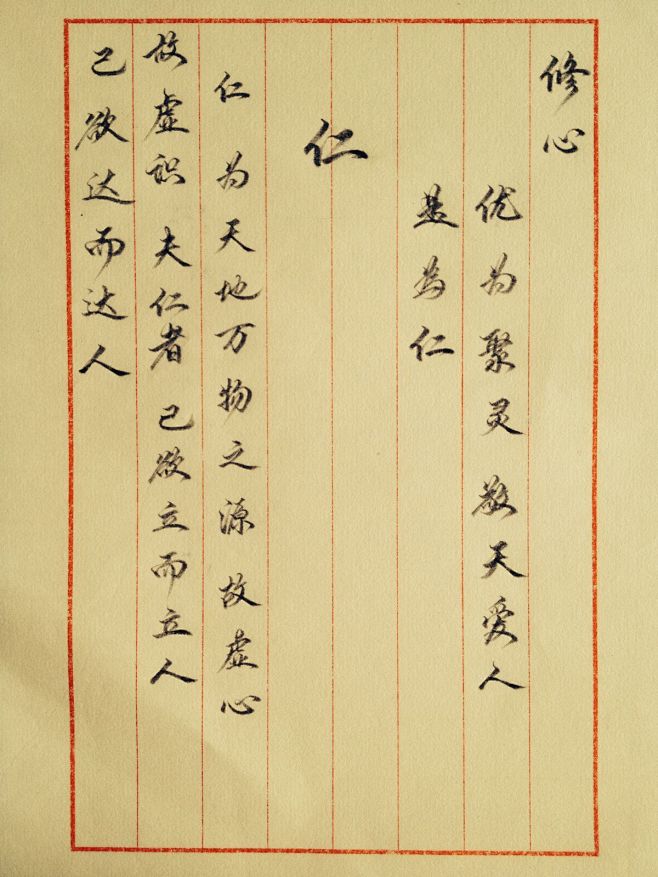 修心
优为聚灵 敬天爱人
是为仁
仁
仁 为天地万物之源 故虚心
故虚识 夫仁者 己欲立而立人
己欲达而达人